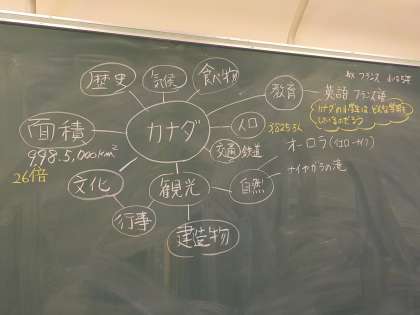 歴史
気候
食べ物
教育
英語 フランス語
面積
998.5,000km²
26倍
カナダ
人口
3825万人
交通 鉄道
オーロラ(イエローナイフ)
ナイヤガラの滝
文化
観光
自然
行事
建造物
カナダの小学生は
しているのだろう